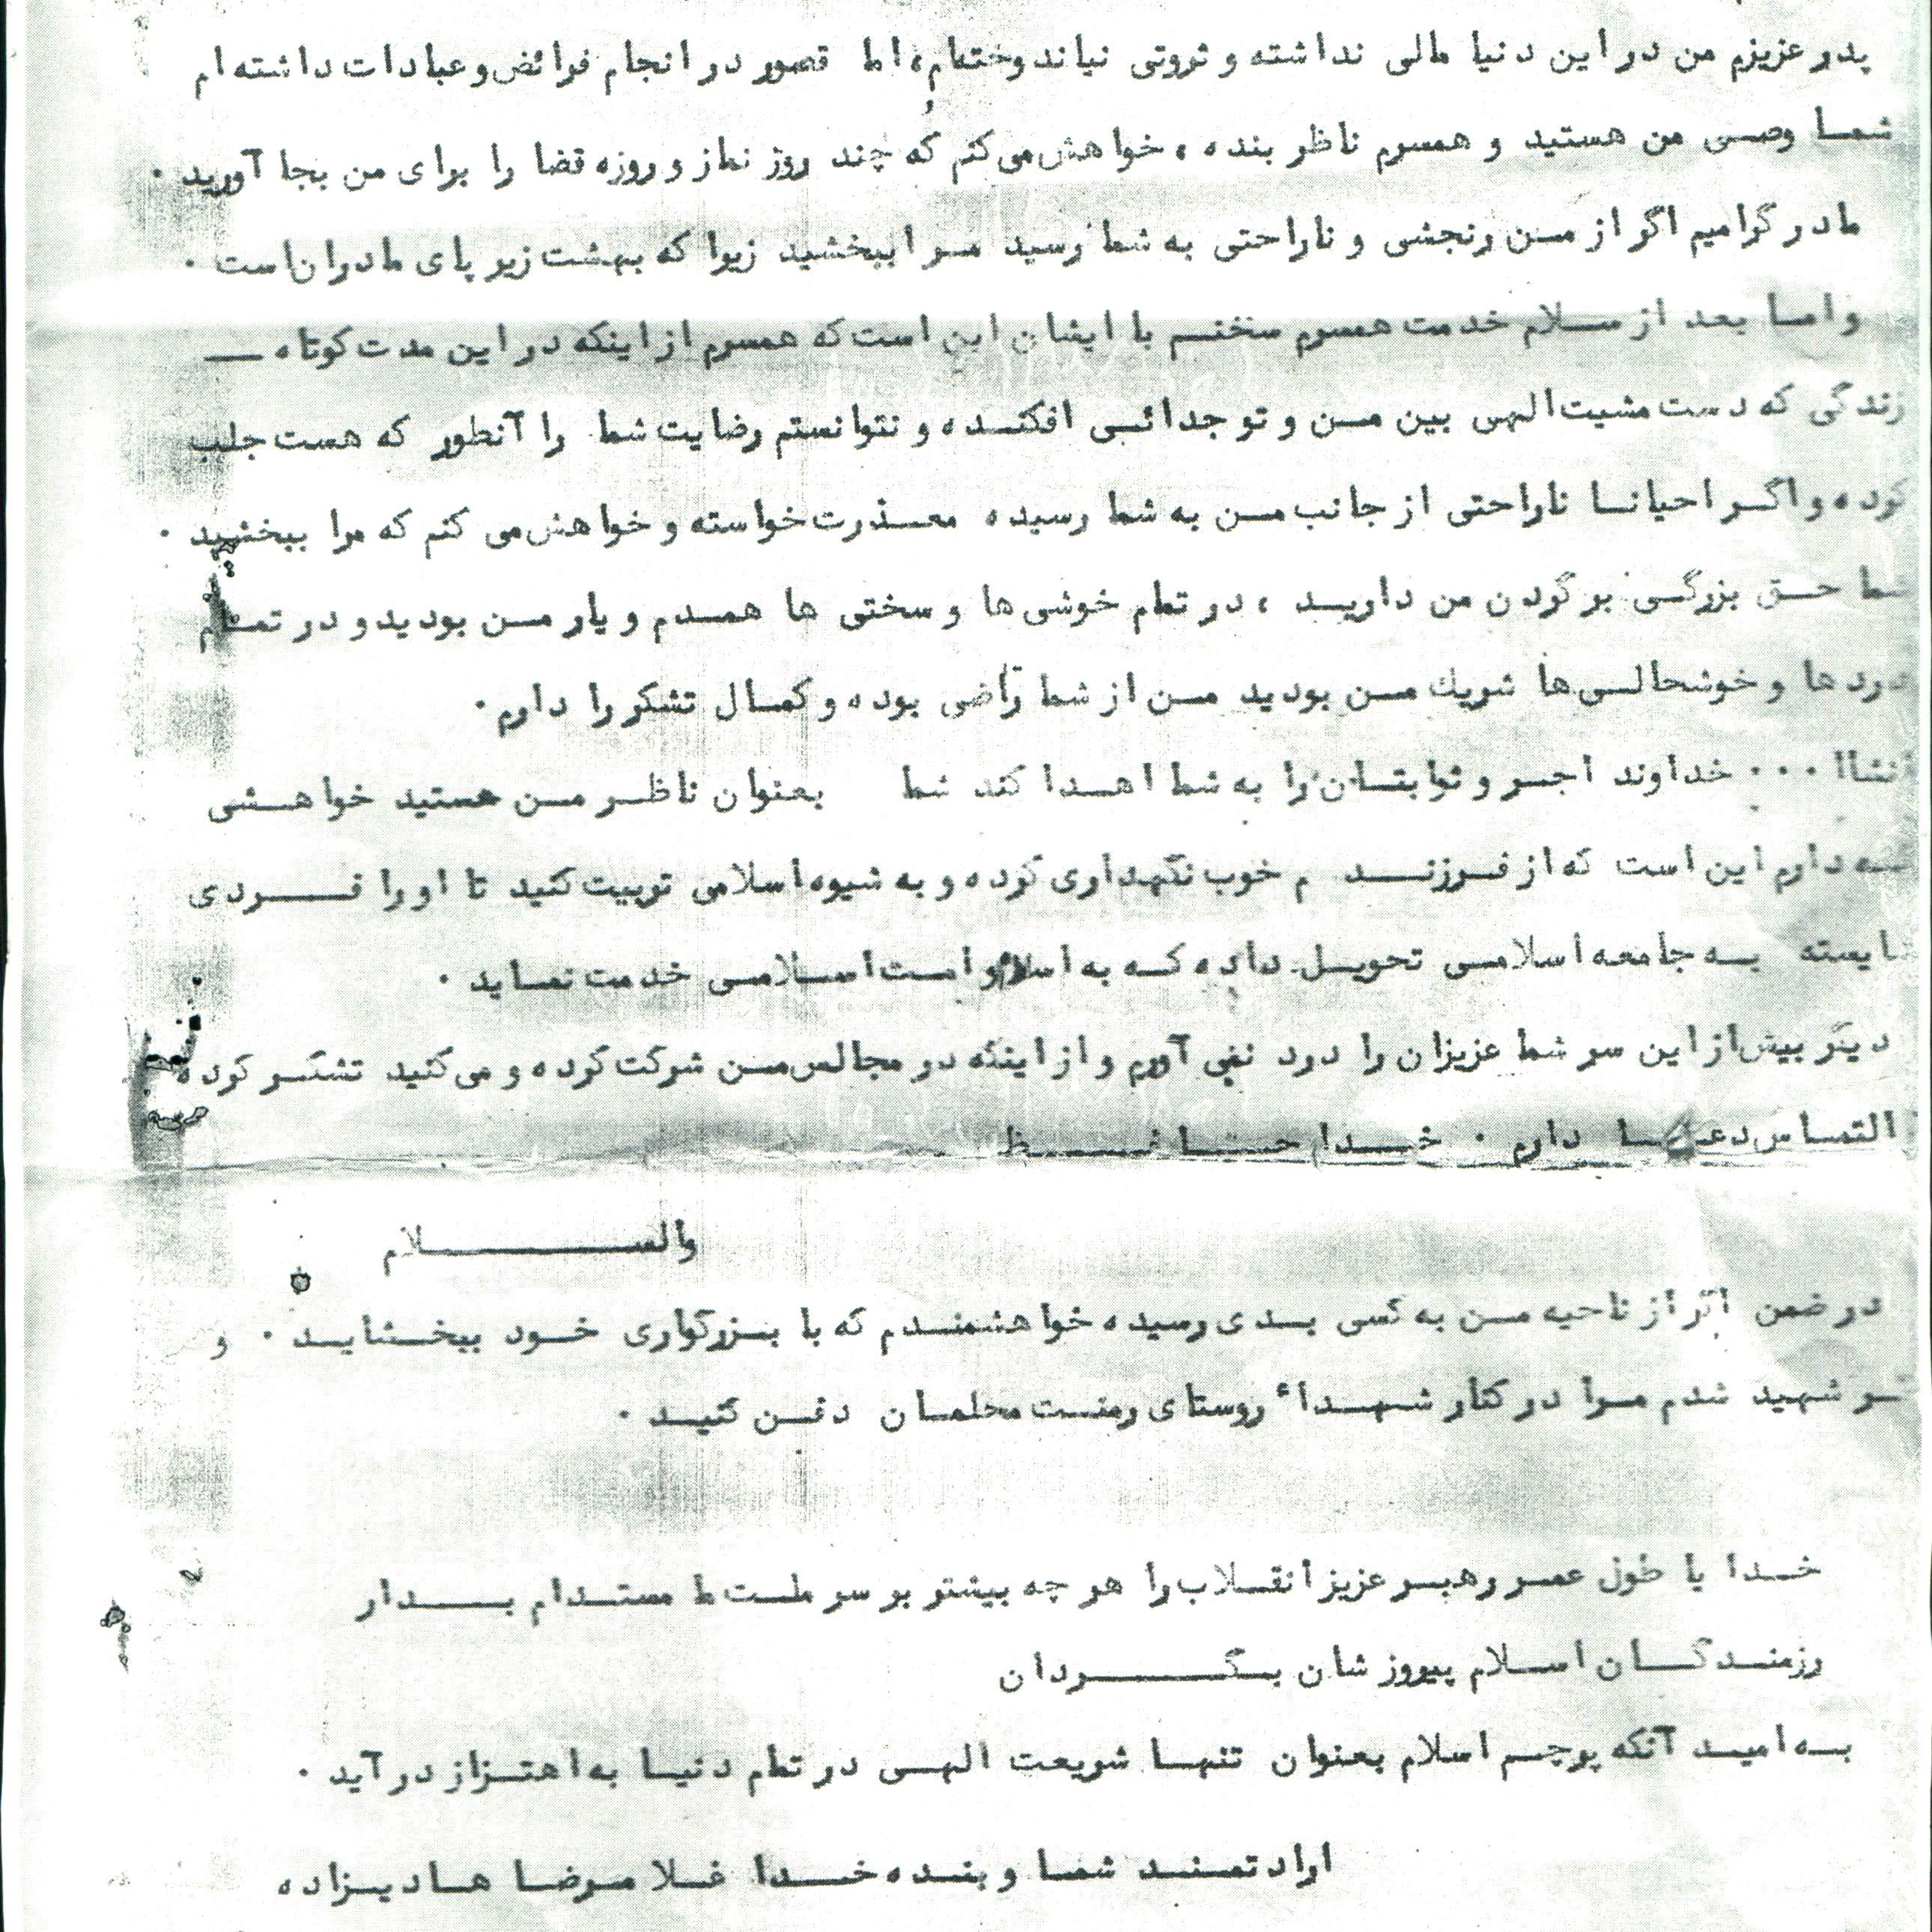 پدر عزیزم من در این دنیا مالی نداشته و ثروتی نیاندوخته‌ام، اما قصور در انجام فرائض و عبادات داشته‌ام
شما وصی من هستید و همسرم ناظر بنده، خواهش می‌کنم که چند روز نماز و روزه قضا را برای من بجا آورید.
مادر گرامیم اگر از من رنجشی و ناراحتی به شما رسید مرا ببخشید زیرا که بهشت زیر پای مادران است.
و اما بعد از سلام خدمت همسرم سخنم با ایشان این است که همسرم از اینکه در این مدت کوتاه
زندگی که دست مشیت الهی بین من و تو جدائی افکنده و نتوانستم رضایت شما را آنطور که هست جلب
کرده و اگر احیانا ناراحتی از جانب من به شما رسیده معذرت خواسته و خواهش می کنم که مرا ببخشید.
شما حق بزرگی بر گردن من دارید، در تمام خوشی ها و سختی ها همدم و یار من بودید و در تمام
دردها و خوشحالی‌ها شریک من بودید من از شما راضی بوده و کمال تشکر را دارم.
انشاا... خداوند اجر و ثوابتان را به شما اهدا کند شما بعنوان ناظر من هستید خواهشی
که دارم این است که از فرزندم خوب نگهداری کرده و به شیوه اسلامی تربیت کنید تا او را فردی
شایسته به جامعه اسلامی تحویل داده که به اسلام و امت اسلامی خدمت نماید.
دیگر بیش از این سر شما عزیزان را درد نمی آورم و از اینکه در مجالس من شرکت کرده و می‌کنید تشکر کرده
التماس دعا دارم. خدا حافظ
والسلام
در ضمن اگر از ناحیه من به کسی بدی رسیده خواهشمندم که با بزرگواری خود ببخشاید. و
شهید شدم مرا در کنار شهداء روستای رمنت محلمان دفن کنید.
خدا یا طول عمر رهبر عزیز انقلاب را هر چه بیشتر بر سر ملت ما مستدام بدار
رزمندگان اسلام پیروزشان بگردان
به امید آنکه پرچم اسلام بعنوان تنها شریعت الهی در تمام دنیا به اهتزاز در آید.
ارادتمند شما و بنده خدا غلامرضا هادیزاده